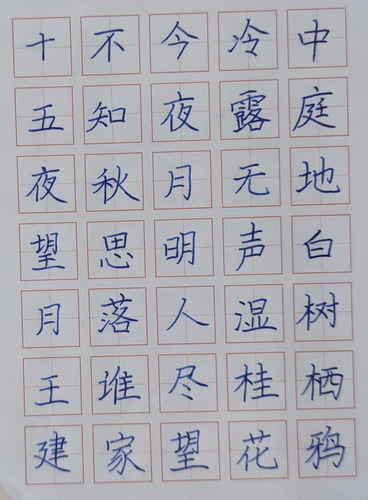 中庭地白树栖鸦
冷露无声湿桂花
今夜月明人尽望
不知秋思落谁家
十五夜望月王建